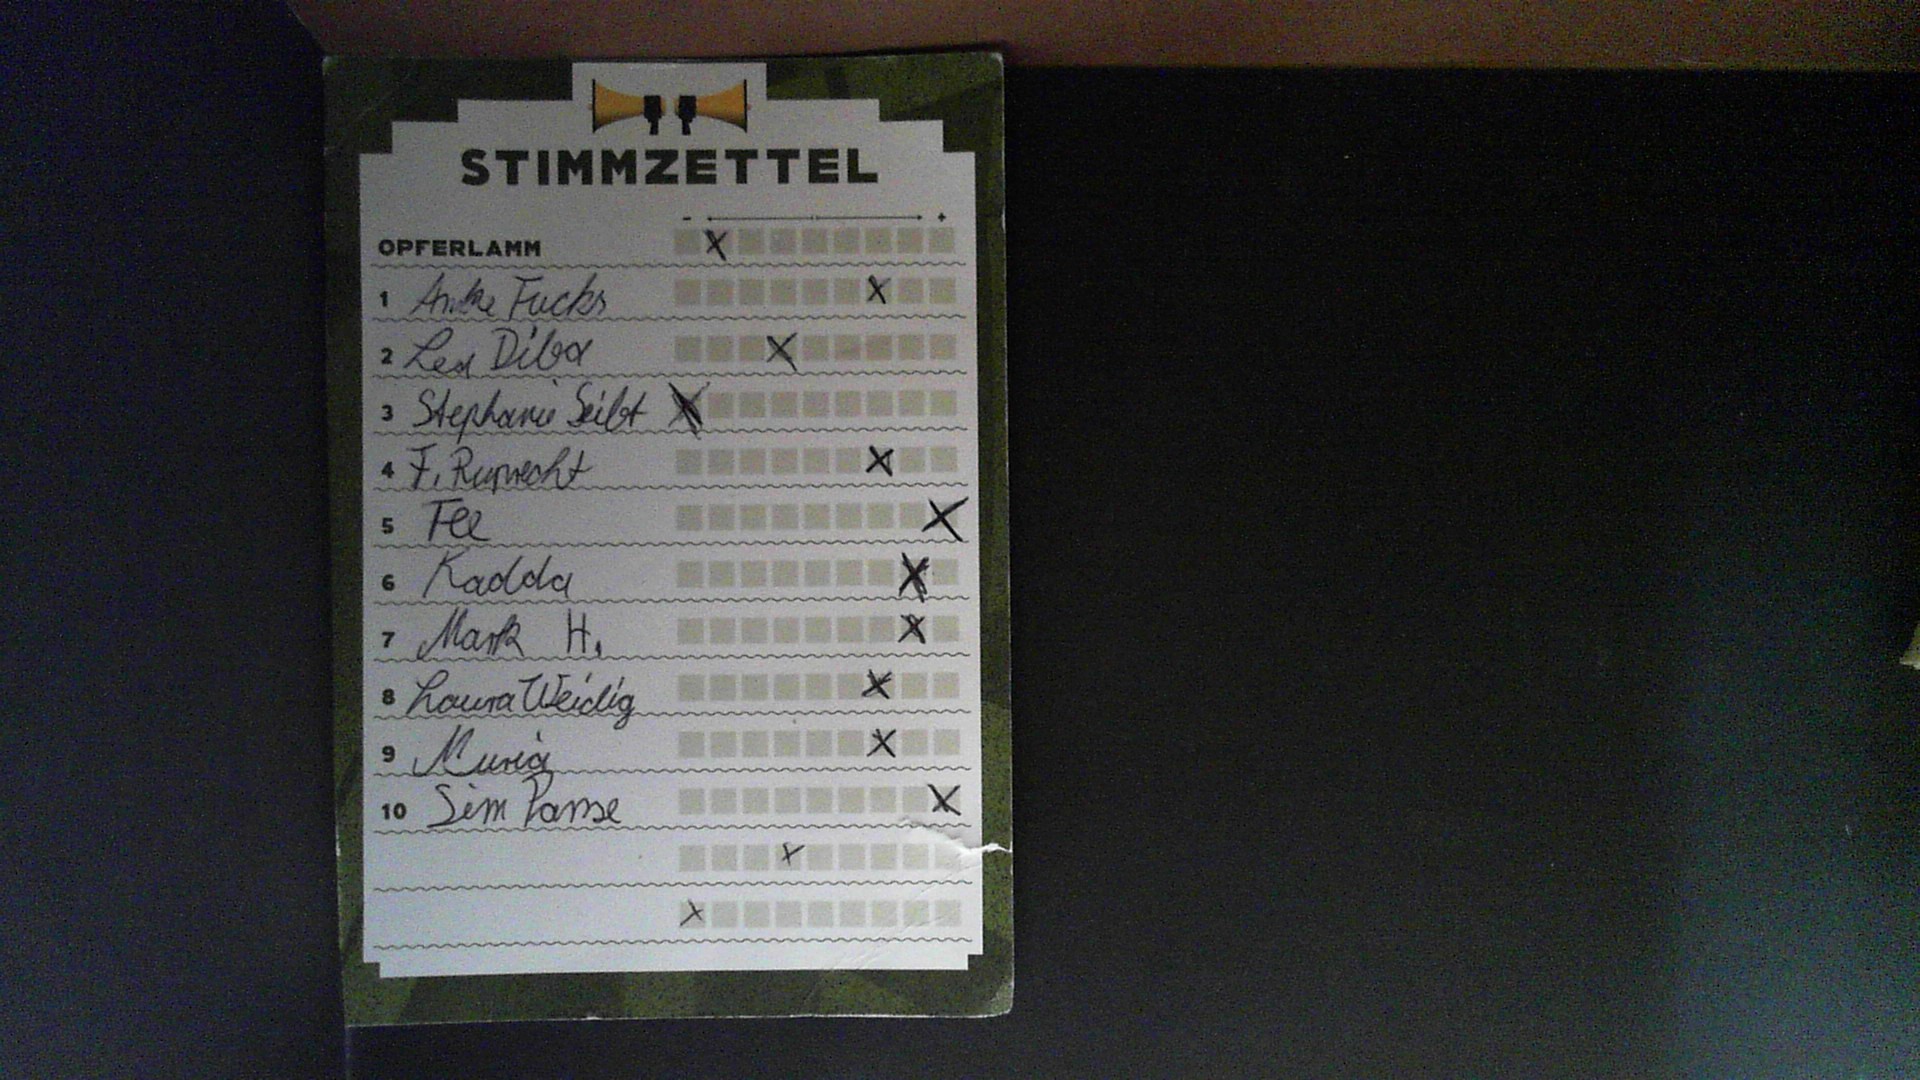 STIMMZETTEL
- +
OPFERLAMM X
1 Anke Fucks X
2 Lea Diba X
3 Stephanie Seibt X
4 F. Ruprecht X
5 Fee X
6 Kadda X
7 Mark H. X
8 Laura Weidig X
9 Muria X
10 Sim Panse X
X
X